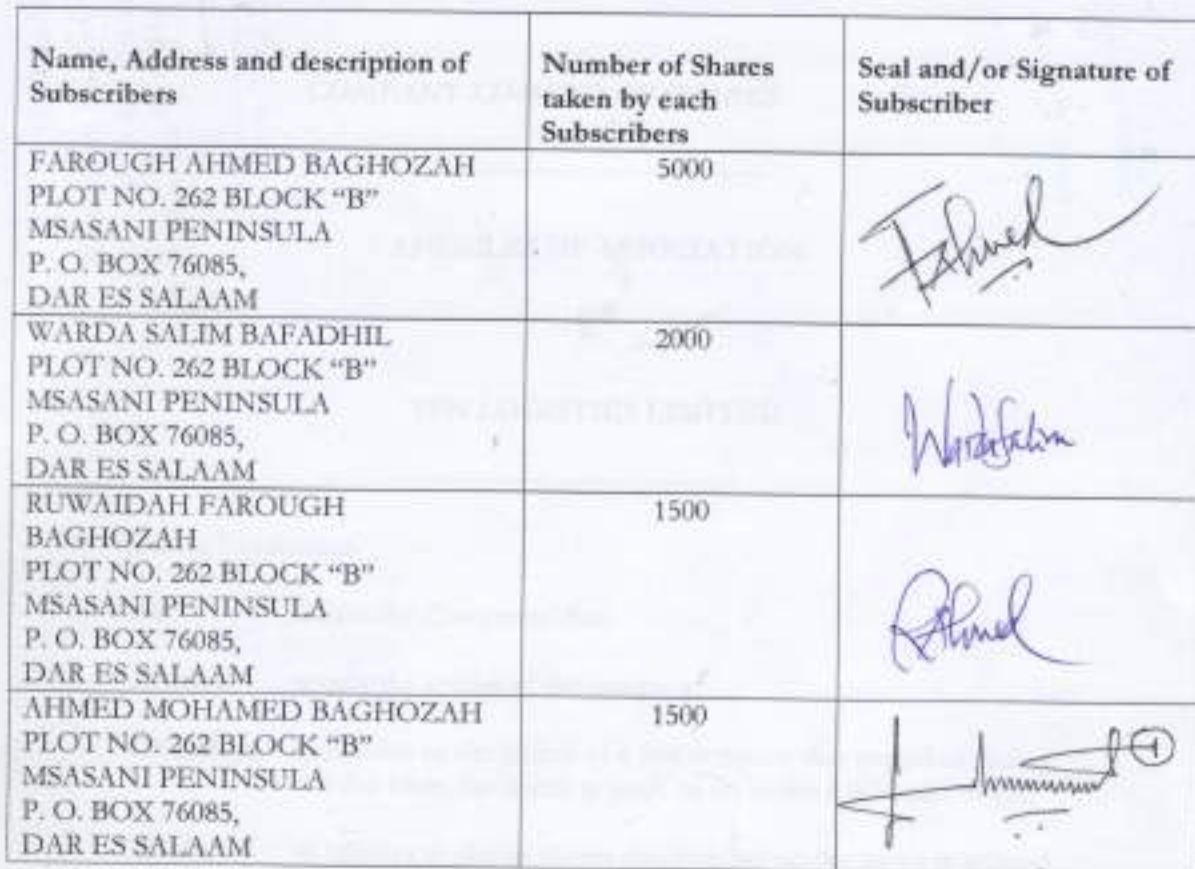 Name, Address and description of Subscribers
Number of Shares taken by each Subscribers
Seal and/or Signature of Subscriber
FAROUGH AHMED BAGHOZAH
5000
PLOT NO. 262 BLOCK “B”
MSASANI PENINSULA
P. O. BOX 76085,
DAR ES SALAAM
WARDA SALIM BAFADHIL
2000
PLOT NO. 262 BLOCK “B”
MSASANI PENINSULA
P. O. BOX 76085,
DAR ES SALAAM
Warda Salim
RUWAIDAH FAROUGH
1500
BAGHOZAH
PLOT NO. 262 BLOCK “B”
MSASANI PENINSULA
P. O. BOX 76085,
DAR ES SALAAM
AHMED MOHAMED BAGHOZAH
1500
PLOT NO. 262 BLOCK “B”
MSASANI PENINSULA
P. O. BOX 76085,
DAR ES SALAAM